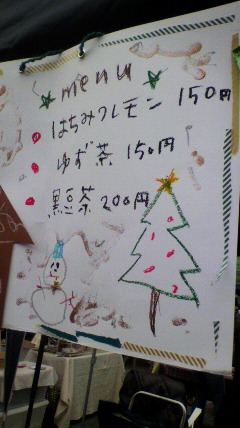 menu
はちみつレモン 150円
ゆず茶 150円
黒豆茶 200円